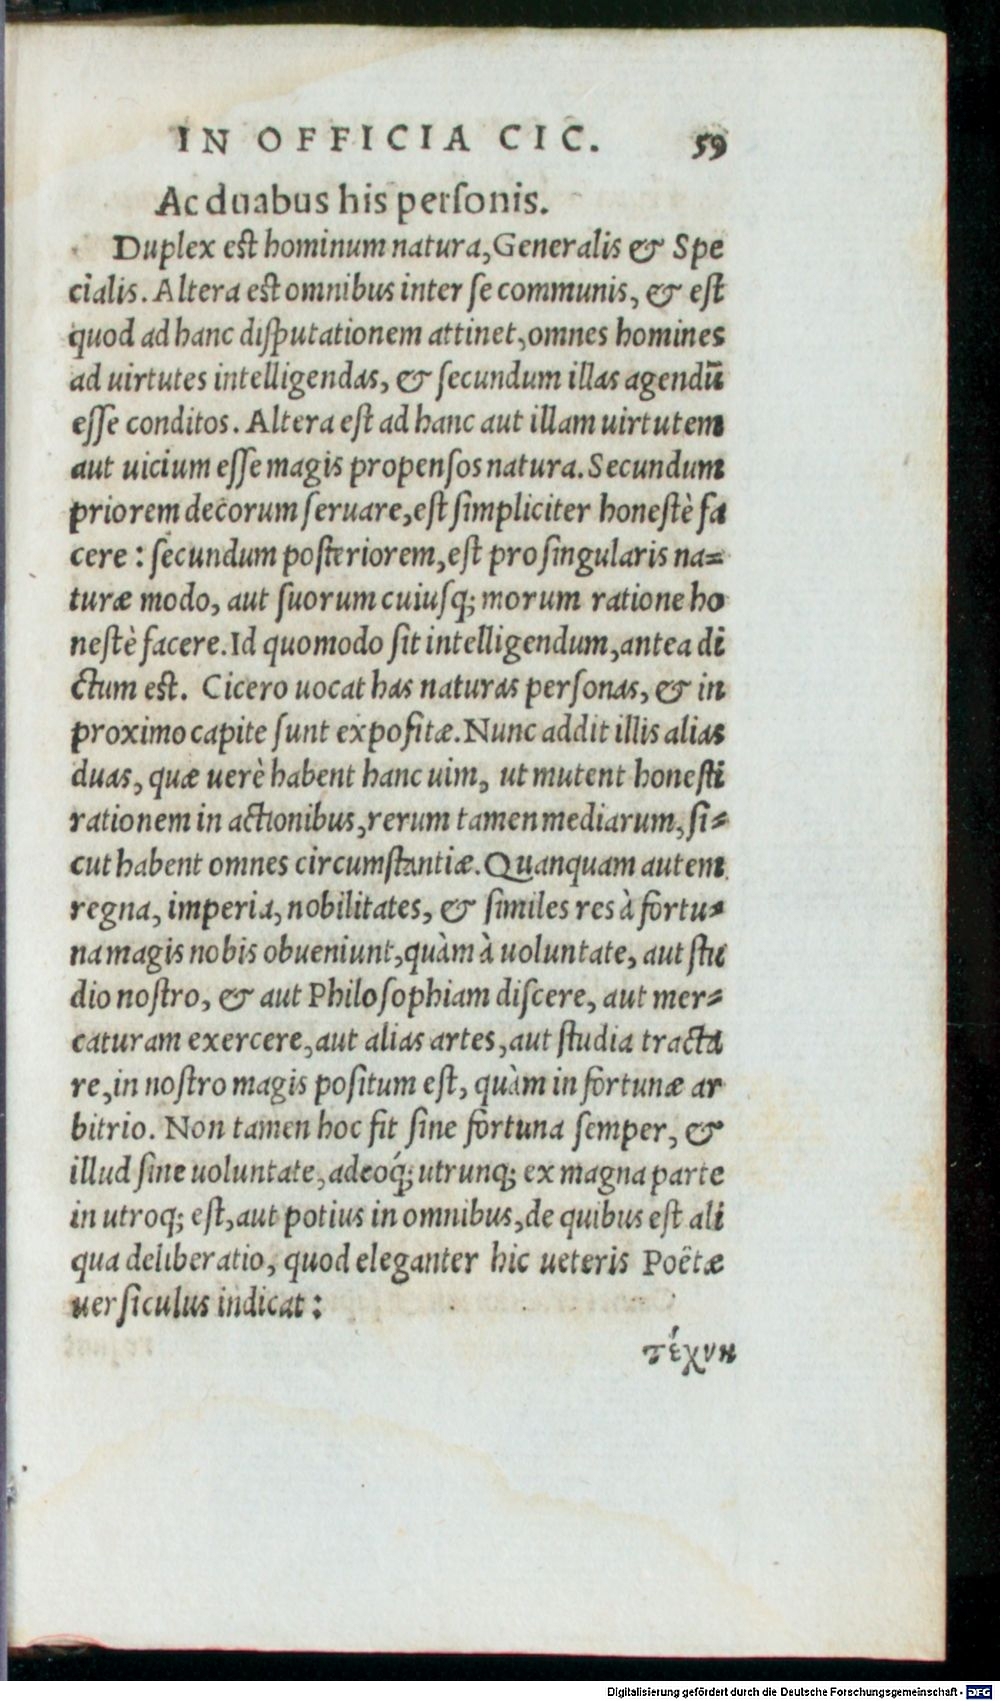 IN OFFICIA CIC. 59
Ac duabus his personis.
Duplex est hominum natura, Generalis & Spe
cialis. Altera est omnibus inter se communis, & est
quod ad hanc disputationem attinet, omnes homines
ad uirtutes intelligendas, & secundum illas agendū
esse conditos. Altera est ad hanc aut illam uirtutem
aut uicium esse magis propensos natura. Secundum
priorem decorum seruare, est simpliciter honestè fa
cere: secundum posteriorem, est pro singularis na=
turæ modo, aut suorum cuiusq; morum ratione ho
nestè facere. Id quomodo sit intelligendum, antea di
ctum est. Cicero uocat has naturas personas, & in
proximo capite sunt expositæ. Nunc addit illis alias
duas, quæ uerè habent hanc uim, ut mutent honesti
rationem in actionibus, rerum tamen mediarum, si=
cut habent omnes circumstantiæ. Quanquam autem
regna, imperia, nobilitates, & similes res à fortu=
na magis nobis obueniunt, quàm à uoluntate, aut stu
dio nostro, & aut Philosophiam discere, aut mer=
caturam exercere, aut alias artes, aut studia tracta
re, in nostro magis positum est, quàm in fortunæ ar
bitrio. Non tamen hoc fit sine fortuna semper, &
illud sine uoluntate, adeoq́; utrunq; ex magna parte
in utroq; est, aut potius in omnibus, de quibus est ali
qua deliberatio, quod eleganter hic ueteris Poëtæ
uersiculus indicat:
τέχνη
Digitalisierung gefördert durch die Deutsche Forschungsgemeinschaft - DFG